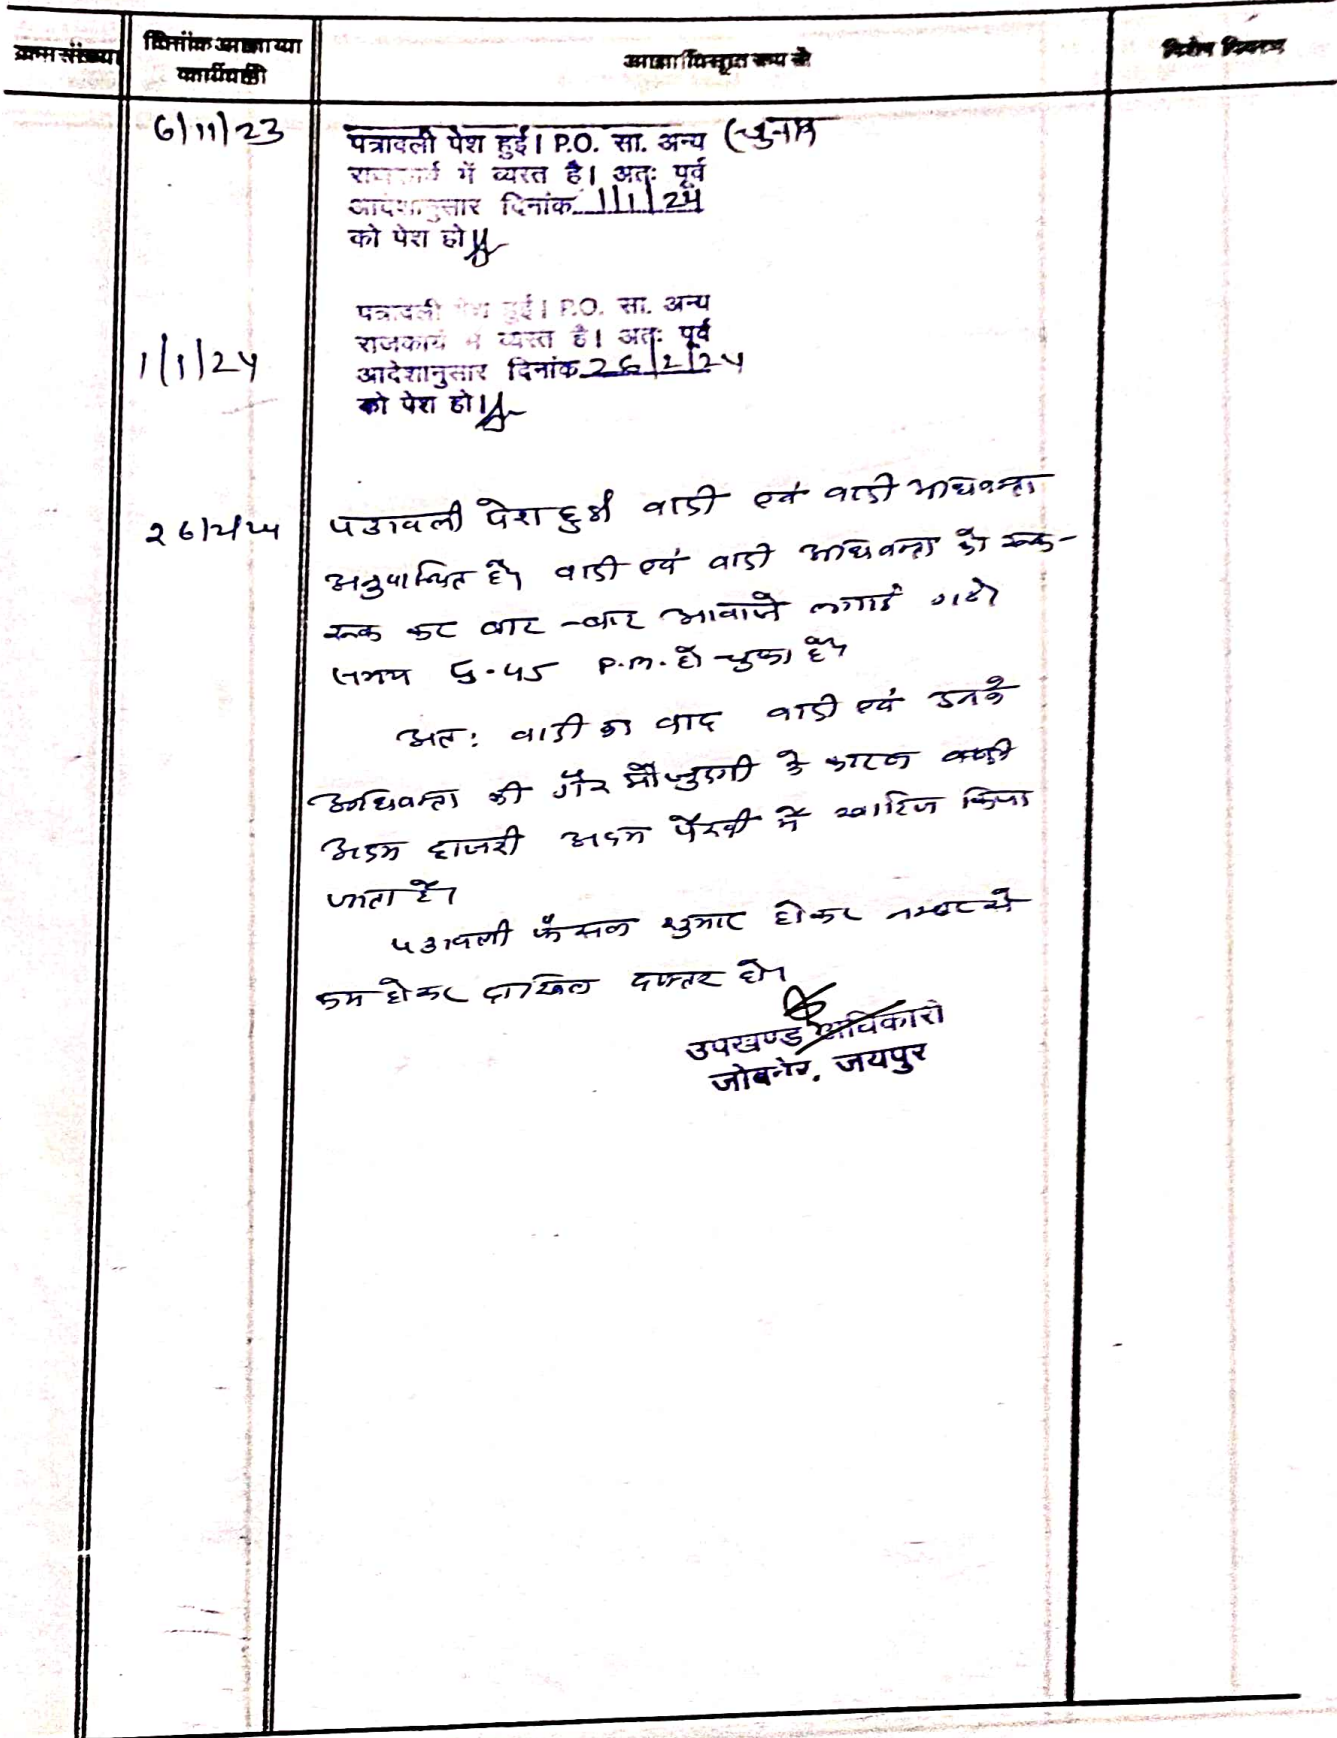 क्रम संख्या
दिनांक आज्ञा या
कार्यवाही
आज्ञा विस्तृत रूप से
विशेष विवरण
6/11/23
पत्रावली पेश हुई। P.O. सा. अन्य (चुनाव
राजकार्य में व्यस्त है। अतः पूर्व
आदेशानुसार दिनांक 1/1/24
को पेश हो
1/1/24
पत्रावली पेश हुई। P.O. सा. अन्य
राजकार्य में व्यस्त है। अतः पूर्व
आदेशानुसार दिनांक 26/2/24
को पेश हो।
26/2/24
पत्रावली पेश हुई वादी एवं वादी अधिवक्ता
अनुपस्थित है। वादी एवं वादी अधिवक्ता को रूक-
रूक कर बार-बार आवाजे लगाई गयी
समय 5.45 P.m. हो चुका है।
अतः वादी का वाद वादी एवं उनके
अधिवक्ता की गैर मौजुदगी के कारण
अदम हाजरी अदम पैरवी में खारिज किया
जाता है।
पत्रावली फैसल शुमार होकर नम्बर से
कम होकर दाखिल दफ्तर हो।
उपखण्ड अधिकारी
जोबनेर, जयपुर